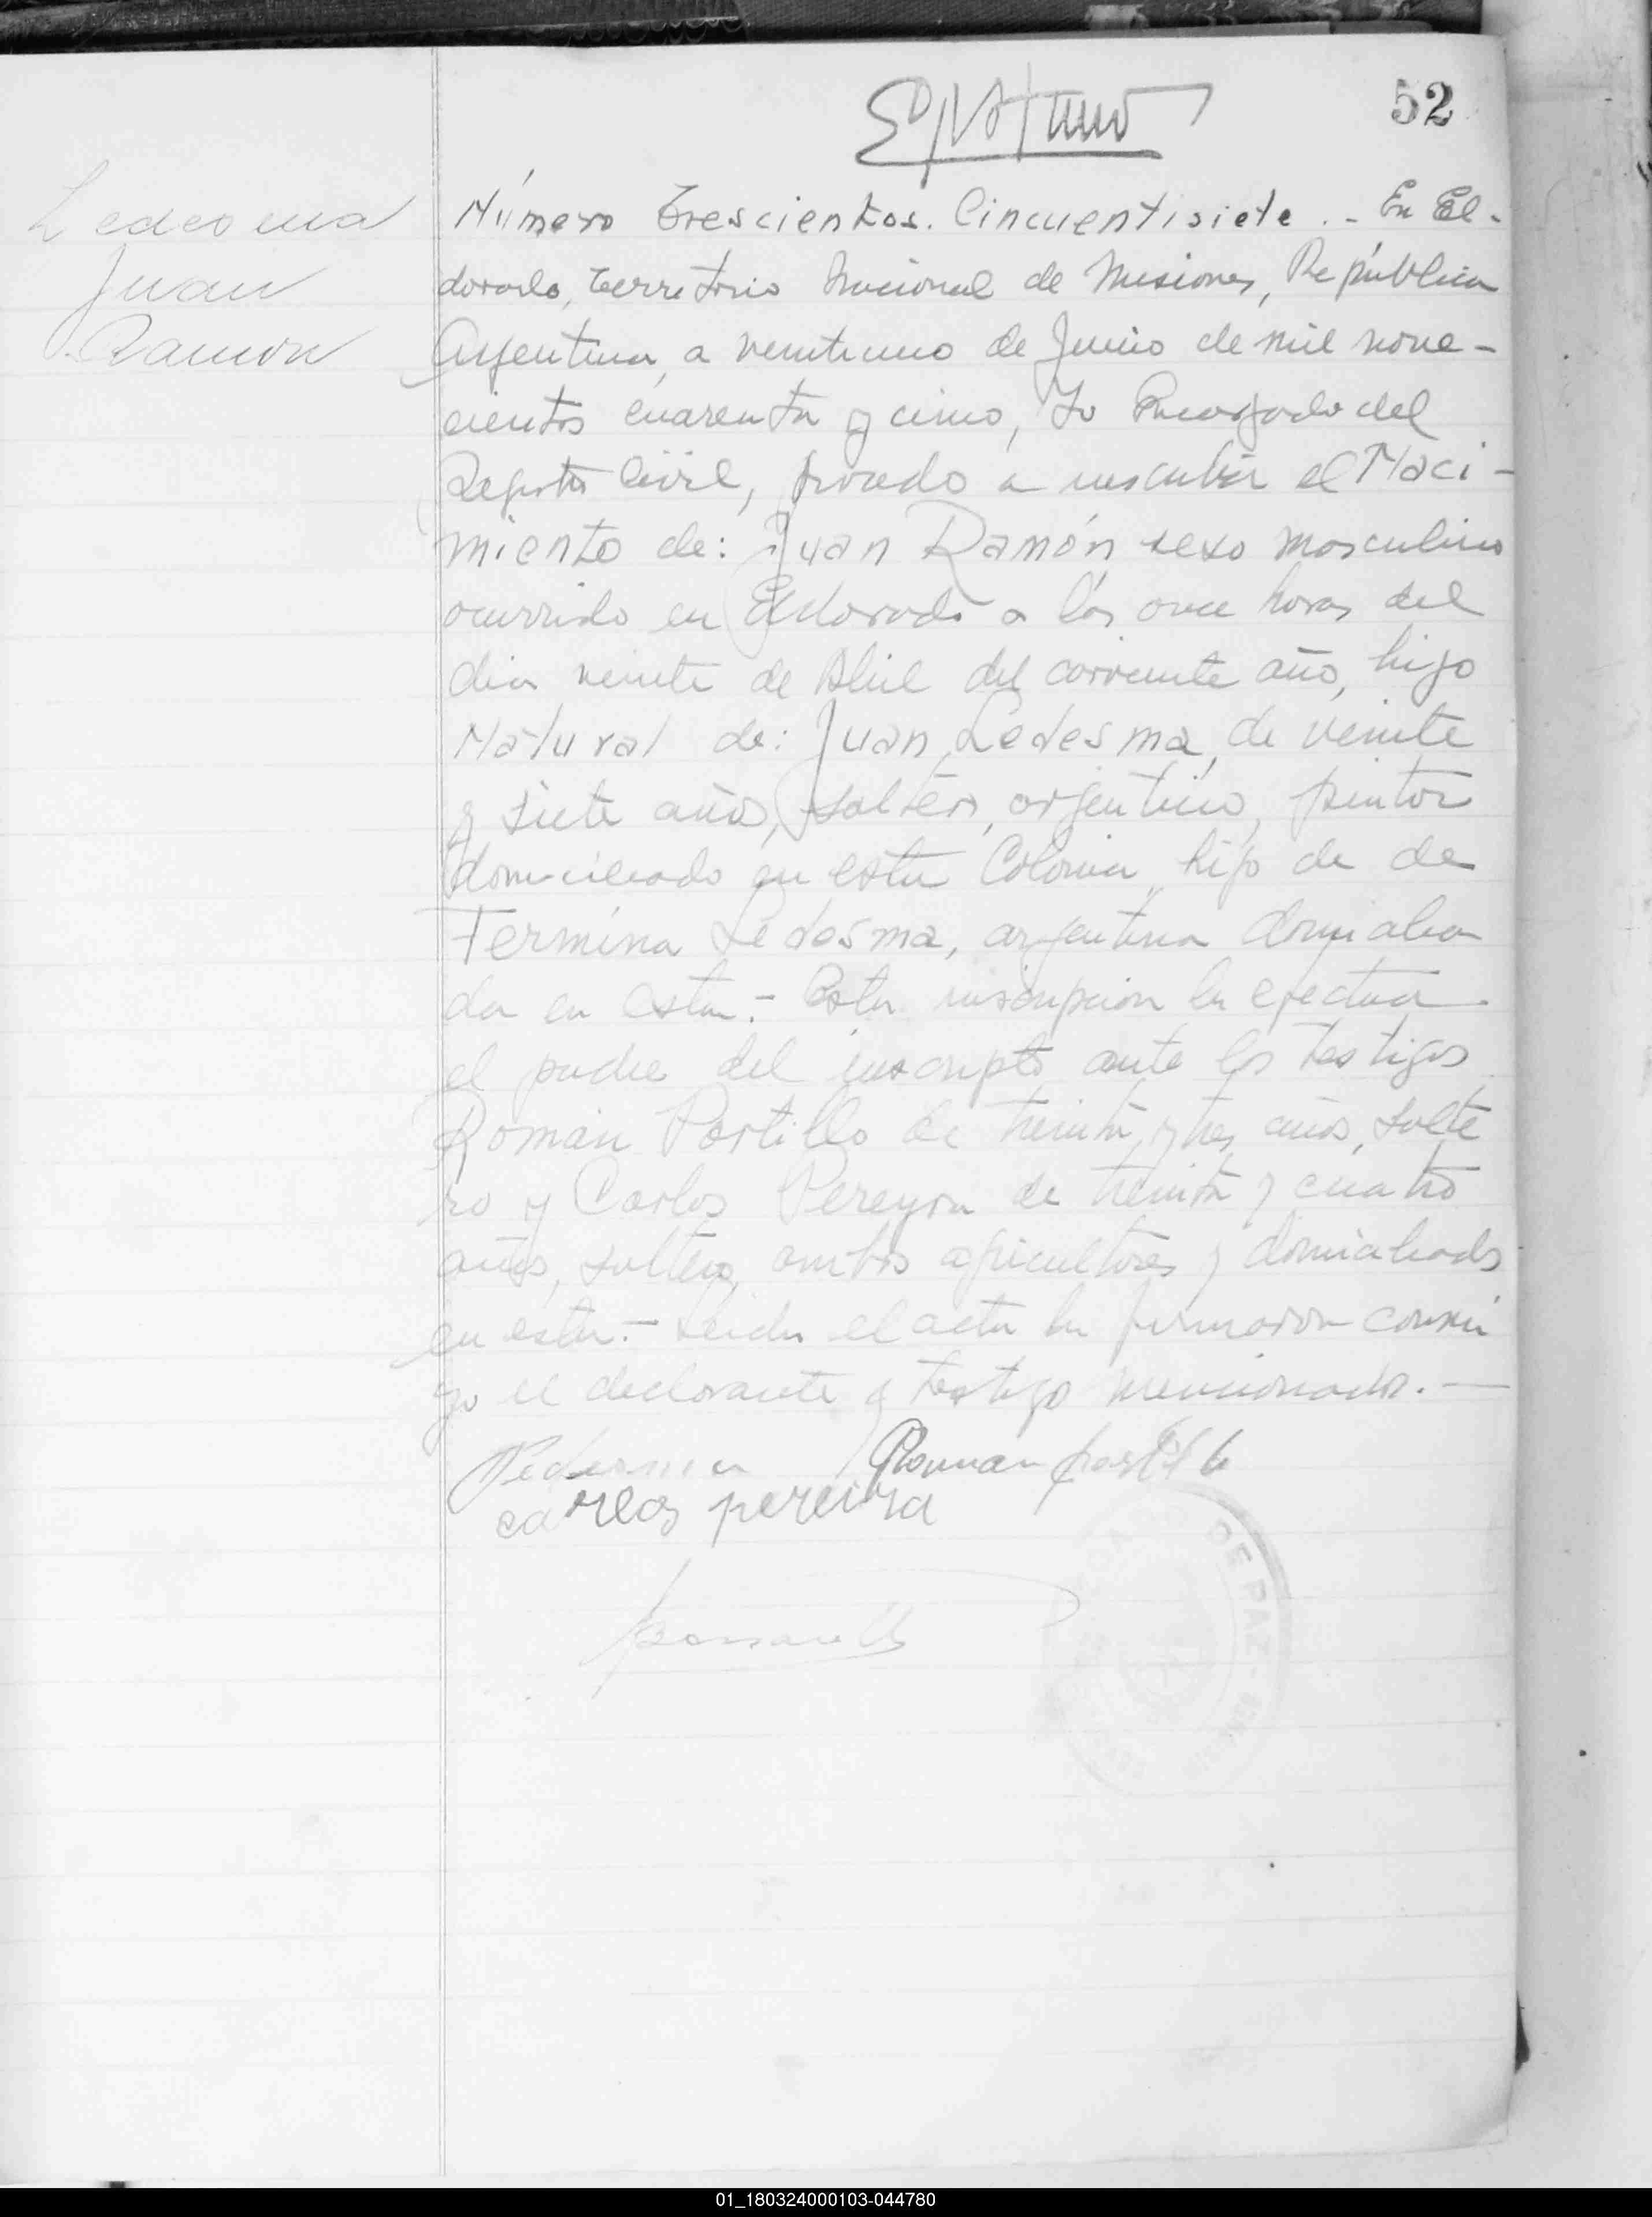 52
Ledesma
Juan
Ramon
Número Trescientos. Cincuentisiete. - En El-
dorado, Territorio Nacional de Misiones, República
Argentina, a veintiuno de Junio de mil nove-
cientos cuarenta y cinco, Yo Encargado del
Registro Civil, procedo a inscribir el Naci-
miento de: Juan Ramón sexo masculino
ocurrido en Eldorado a las once horas del
dia veinte de Abril del corriente año, hijo
Natural de: Juan Ledesma, de veinte
y siete años, soltero, argentino, pintor
domiciliado en esta Colonia, hijo de de
Fermina Ledesma, argentina domicilia
da en esta.- Esta inscripcion la efectua
el padre del inscripto ante los testigos
Román Portillo de treinta y tres años, solte
ro y Carlos Pereyra de treinta y cuatro
años, soltero, ambos agricultores y domiciliados
en esta.- Leida el acta la firmaron conmi
go el declarante y testigo mencionados.-
Ledesma Roman portillo
carlos pereira
DE PAZ
01_180324000103-044780